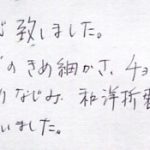 致しました。
のきめ細かさ、チョ
りなじみ、和洋折衷
いました。